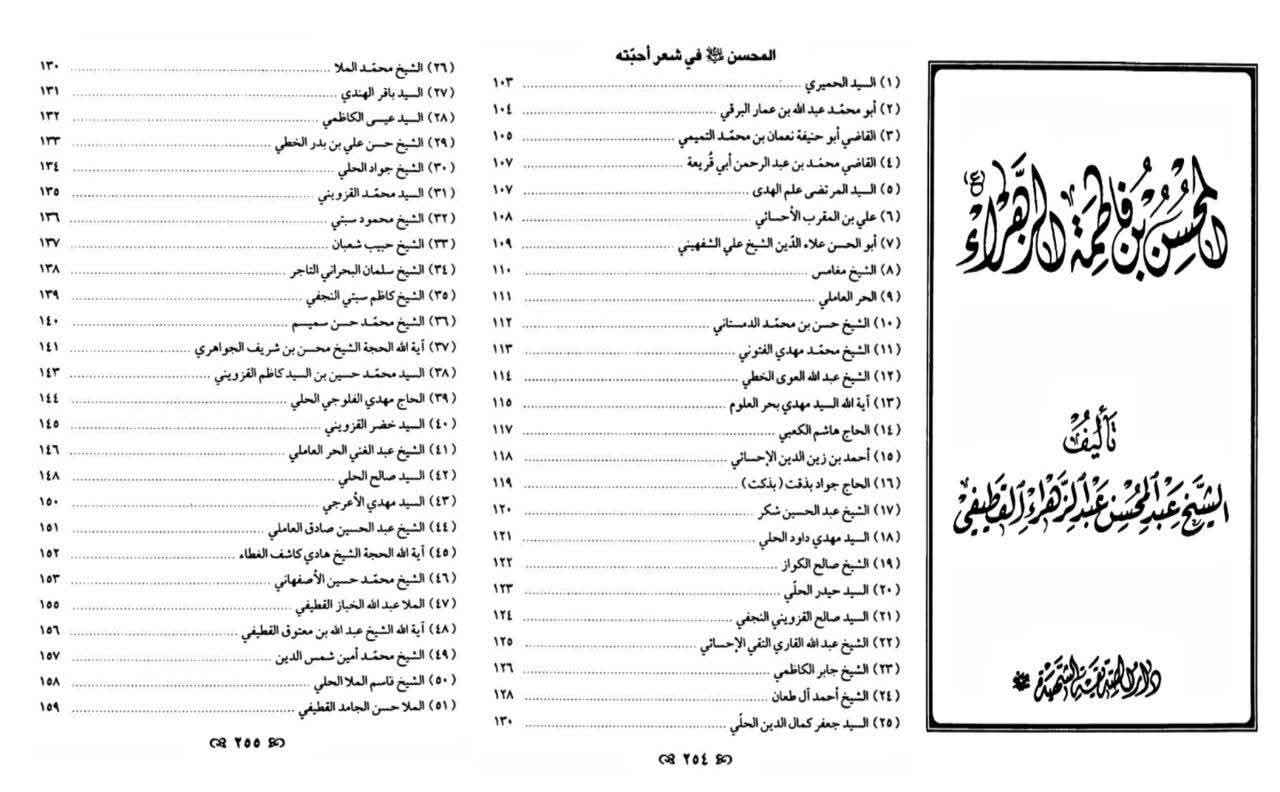 المحسن بن فاطمة الزهراء (ع)
تأليف
الشيخ عبد المحسن عبد الزهراء القطيفي
دار الصديقة الشهيدة
المحسن ﵇ في شعر أحبّته
(١) السيد الحميري ١٠٣
(٢) أبو محمّد عبد الله بن عمار البرقي ١٠٤
(٣) القاضي أبو حنيفة نعمان بن محمّد التميمي ١٠٥
(٤) القاضي محمّد بن عبد الرحمن أبي قُريعة ١٠٧
(٥) السيد المرتضى علم الهدى ١٠٧
(٦) علي بن المقرب الأحسائي ١٠٨
(٧) أبو الحسن علاء الدّين الشيخ علي الشفهيني ١٠٩
(٨) الشيخ مغامس ١١٠
(٩) الحر العاملي ١١١
(١٠) الشيخ حسن بن محمّد الدمستاني ١١٢
(١١) الشيخ محمّد مهدي الفتوني ١١٣
(١٢) الشيخ عبد الله العوى الخطي ١١٤
(١٣) آية الله السيد مهدي بحر العلوم ١١٥
(١٤) الحاج هاشم الكعبي ١١٧
(١٥) أحمد بن زين الدين الإحسائي ١١٨
(١٦) الحاج جواد بذقت (بذكت) ١١٩
(١٧) الشيخ عبد الحسين شكر ١٢٠
(١٨) السيد مهدي داود الحلي ١٢١
(١٩) الشيخ صالح الكواز ١٢٢
(٢٠) السيد حيدر الحلّي ١٢٣
(٢١) السيد صالح القزويني النجفي ١٢٤
(٢٢) الشيخ عبد الله القاري التقي الإحسائي ١٢٥
(٢٣) الشيخ جابر الكاظمي ١٢٦
(٢٤) الشيخ أحمد آل طعان ١٢٨
(٢٥) السيد جعفر كمال الدين الحلّي ١٣٠
٢٥٤
(٢٦) الشيخ محمّد الملا ١٣٠
(٢٧) السيد باقر الهندي ١٣١
(٢٨) السيد عيسى الكاظمي ١٣٢
(٢٩) الشيخ حسن علي بن بدر الخطي ١٣٣
(٣٠) الشيخ جواد الحلي ١٣٤
(٣١) السيد محمّد القزويني ١٣٥
(٣٢) الشيخ محمود سبتي ١٣٦
(٣٣) الشيخ حبيب شعبان ١٣٧
(٣٤) الشيخ سلمان البحراني التاجر ١٣٨
(٣٥) الشيخ كاظم سبتي النجفي ١٣٩
(٣٦) الشيخ محمّد حسن سميسم ١٤٠
(٣٧) آية الله الحجة الشيخ محسن بن شريف الجواهري ١٤١
(٣٨) السيد محمّد حسين بن السيد كاظم القزويني ١٤٣
(٣٩) الحاج مهدي الفلوجي الحلي ١٤٤
(٤٠) السيد خضر القزويني ١٤٥
(٤١) الشيخ عبد الغني الحر العاملي ١٤٦
(٤٢) السيد صالح الحلي ١٤٨
(٤٣) السيد مهدي الأعرجي ١٥٠
(٤٤) الشيخ عبد الحسين صادق العاملي ١٥١
(٤٥) آية الله الحجة الشيخ هادي كاشف الغطاء ١٥٢
(٤٦) الشيخ محمّد حسين الأصفهاني ١٥٣
(٤٧) الملا عبد الله الخباز القطيفي ١٥٥
(٤٨) آية الله الشيخ عبد الله بن معتوق القطيفي ١٥٦
(٤٩) الشيخ محمّد أمين شمس الدين ١٥٧
(٥٠) الشيخ قاسم الملا الحلي ١٥٨
(٥١) الملا حسن الجامد القطيفي ١٥٩
٢٥٥